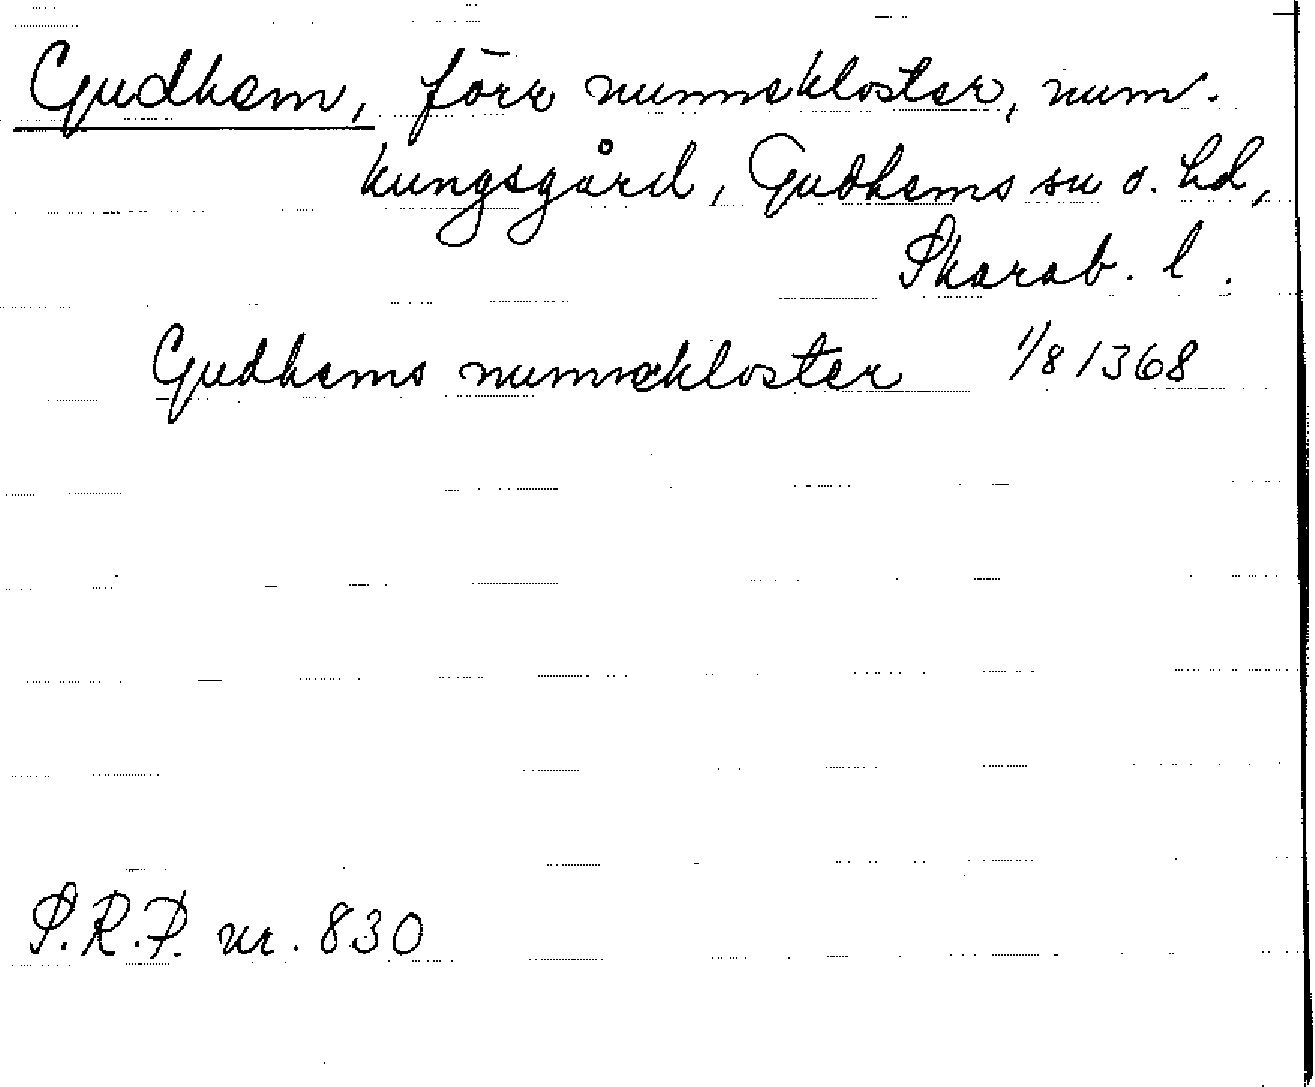 Gudhem, förr nunnekloster, num.
kungsgård, Gudhems sn o. hd,
Skarab. l.
Gudhems nunnekloster 1/8 1368
S.R.P. nr. 830